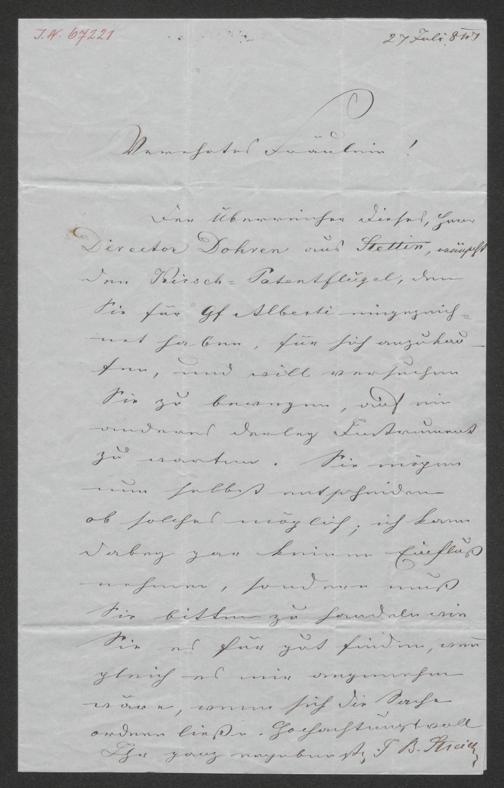 I.N. 67221
27 Juli 8
Verehrtes Fräulein!
Der Überreicher dieses, Herr
Director Dohren aus Stettin, wünscht
den Kirsch-Patentflügel, den
Sie für Gf Alberti eingezeich=
net haben, für sich anzukau-
fen, und will versuchen
Sie zu bewegen, auf ein
anderes derley Instrument
zu warten. Sie mögen
nun selbst entscheiden
ob solches möglich; ich kann
dabey gar keinen Einfluß
nehmen, sondern muß
Sie bitten zu handeln wie
Sie es für gut finden, wenn
gleich es mir angenehm
wäre, wenn sich die Sache
ordnen ließe. Hochachtungsvoll
Ihr ganz ergebenster J B Streicher